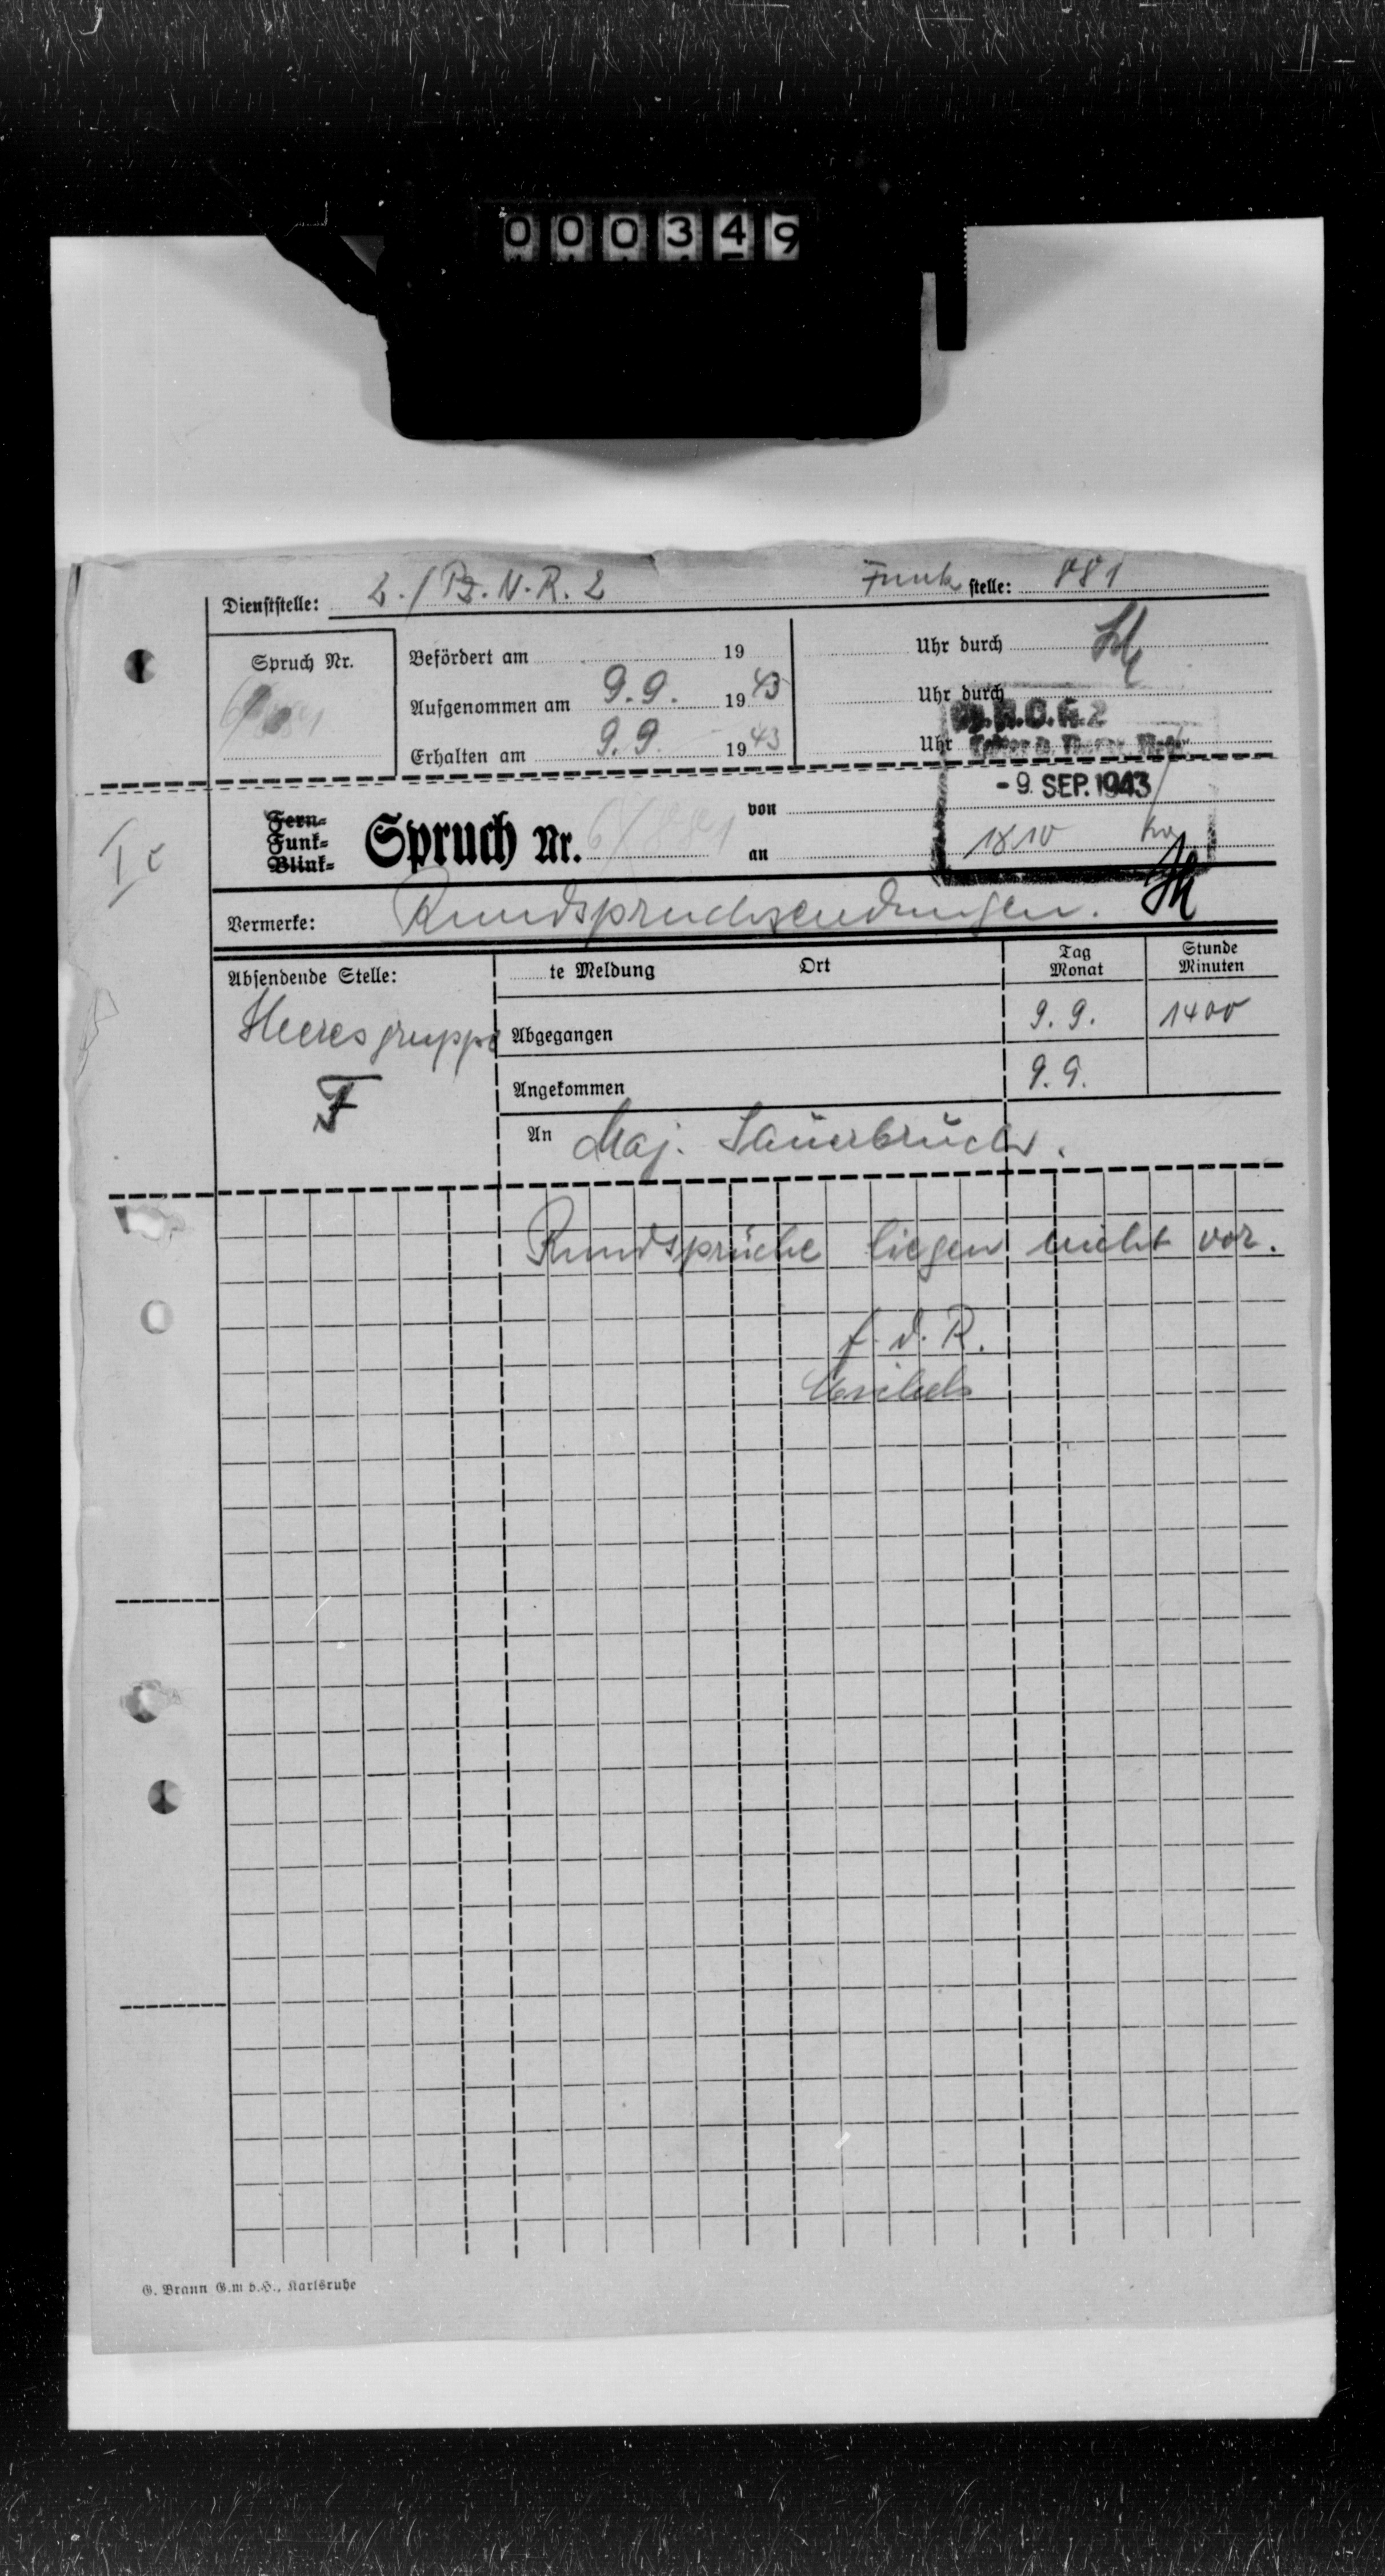 000349
Dienststelle: 2./Pz.N.R.2 Funk stelle: 881
Spruch Nr.
Befördert am 19 Uhr durch
Aufgenommen am 9.9. 1943 Uhr durch
Erhalten am 9.9. 1943 Uhr
- 9. SEP. 1943
Fern-
Funk-
Blink-
Spruch Nr. 6/881 von
an 1810
Ic
Vermerke: Rundspruchsendungen.
Absendende Stelle: te Meldung Ort Tag Monat Stunde Minuten
Heeresgruppe Abgegangen 9.9. 1400
F Angekommen 9.9.
An Maj. Sauerbruch.
Rundsprüche liegen nicht vor.
f.d.R.
G. Braun G.m.b.H., Karlsruhe